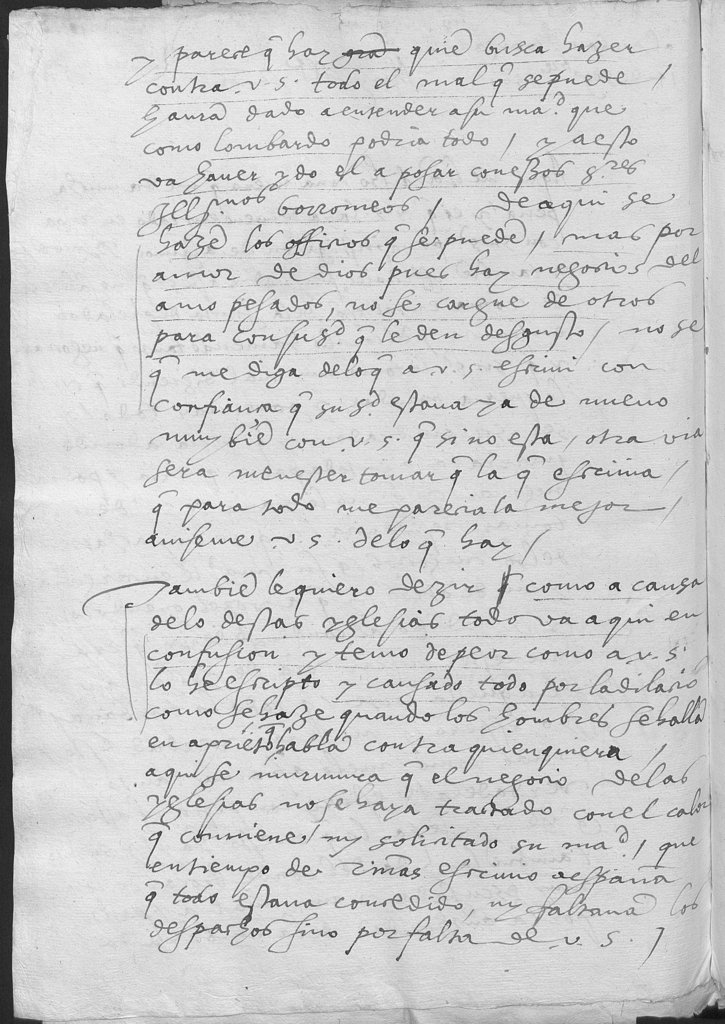 y parece q̃ hay grã quiẽ busca hazer
contra v. s. todo el mal q̃ se puede /
haurã dado a entender a su ma.d que
como lombardo podria todo / y a esto
va hauer ydo el a posar con essos s.res
Ill.mos borromeos / de aqui se
hazẽ los officios q̃ se puedẽ / mas por
amor de dios pues hay negocios del
amo pesados, no se cargue de otros
para con su s.d q̃ le den desgusto / no se
q̃ me diga de lo q̃ a v. s. escriui con
confiança q̃ su s.d estaua ya de nueuo
muy biẽ con v. s. q̃ si no esta / otra via
sera menester tomar q̃ la q̃ escriuia /
q̃ para todo me parecia la mejor /
auiseme v. s. de lo q̃ hay /
Tambiẽ le quiero dezir como a causa
de lo destas yglesias todo va aqui en
confusion y temo de peor como a v. s.
lo he escripto y causado todo por la dilaciõ
como se haze quando los hombres se hallã
en aprieto q̃ hablã contra quienquiera /
aqui se murmura q̃ el negocio de las
yglesias no se haya tractado con el calor
q̃ conuiene / ny solicitado su ma.d / que
en tiempo de escriuio a españa
q̃ todo estaua concedido, ny faltauã los
despachos sino por falta de v. s. /